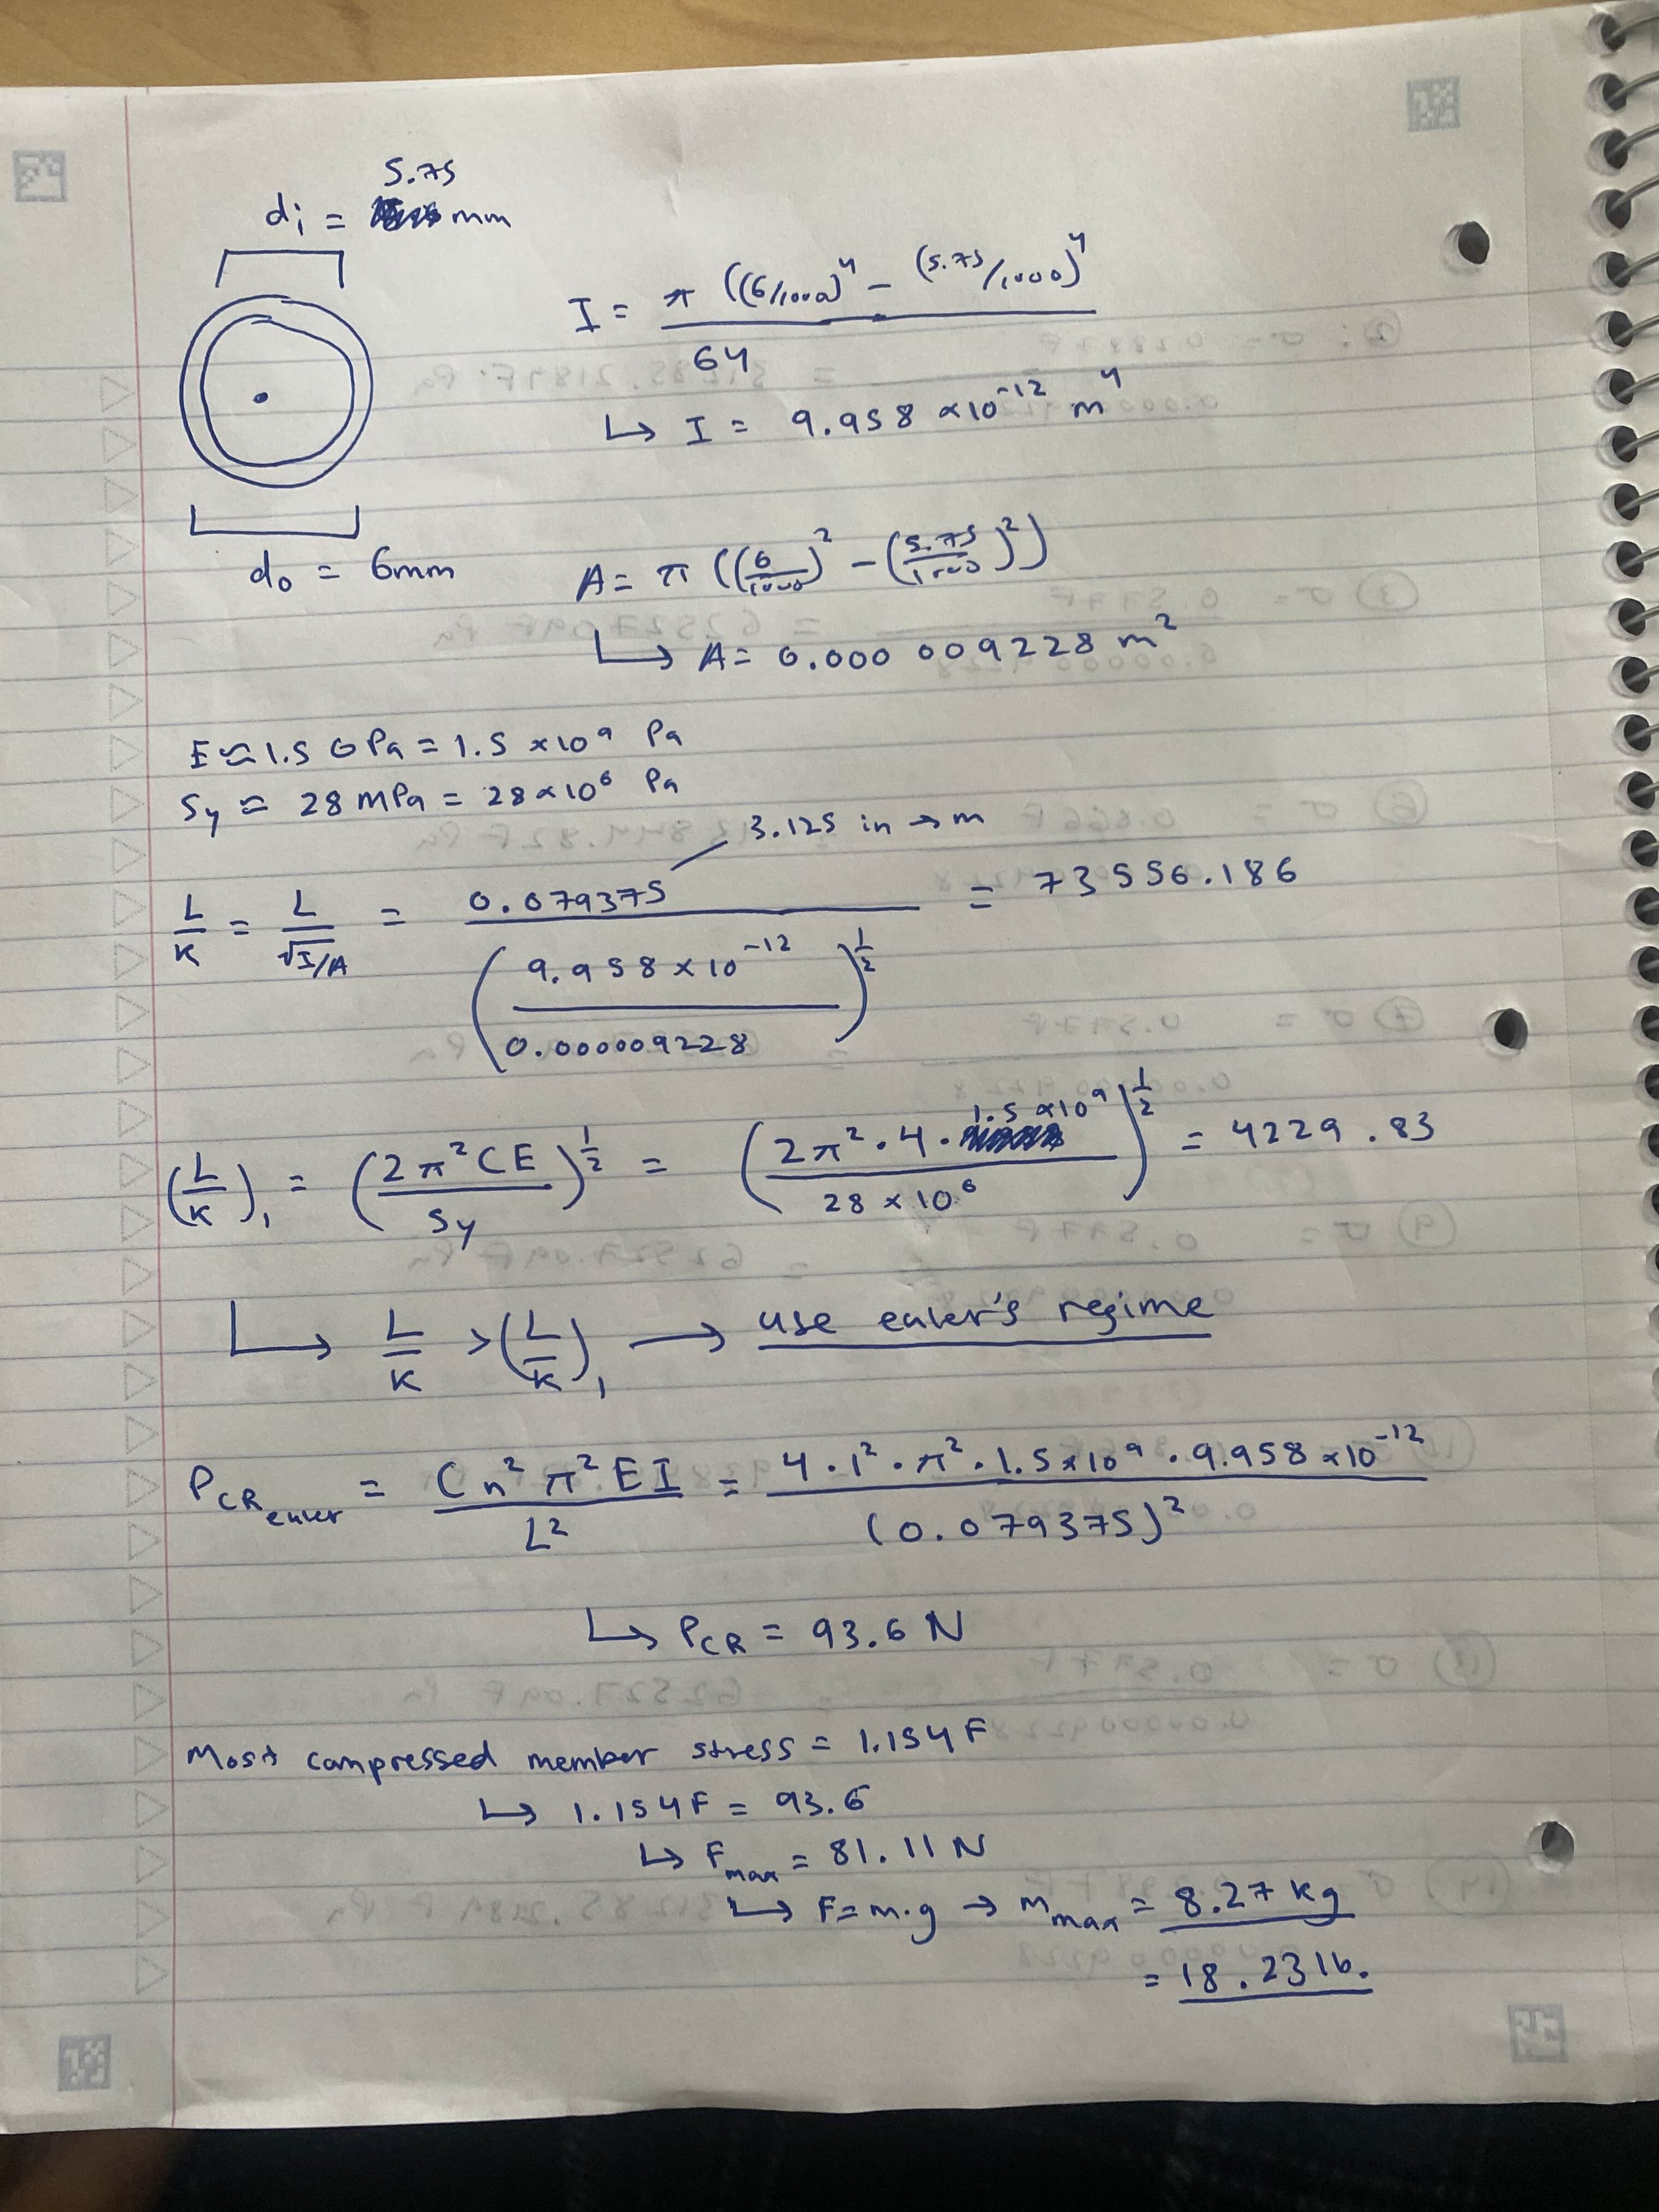 5.75
di = mm
I = π ((6/1000)^4 - (5.75/1000)^4
64
↳ I = 9.958 x10^-12 m^4
do = 6mm
A = π ((6/1000)^2 - (5.75/1000)^2)
↳ A = 0.000 009228 m^2
E ≈ 1.5 GPa = 1.5 x10^9 Pa
Sy ≈ 28 MPa = 28 x10^6 Pa
3.125 in → m
L/K = L/√I/A = 0.079375 / (9.958 x 10^-12 / 0.000009228)^1/2 = 73556.186
(L/K)1 = (2π^2CE / Sy)^1/2 = (2π^2 · 4 · 1.5 x10^9 / 28 x 10^6)^1/2 = 4229.83
↳ L/K > (L/K)1 → use euler's regime
PCR euler = C n^2 π^2 EI / L^2 = 4 · 1^2 · π^2 · 1.5 x10^9 · 9.958 x10^-12 / (0.079375)^2
↳ PCR = 93.6 N
Most compressed member stress = 1.154F
↳ 1.154F = 93.6
↳ Fmax = 81.11 N
↳ F = m·g → mmax = 8.27 kg
= 18.23 lb.